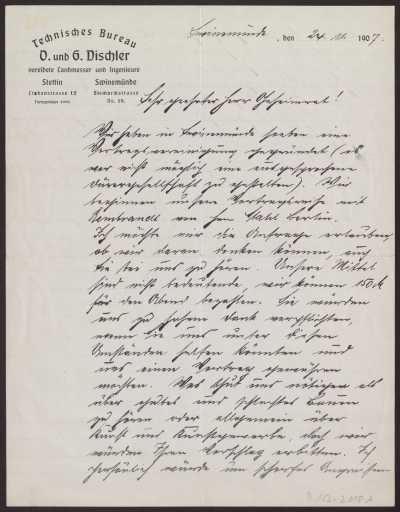 Technisches Bureau
O. und G. Dischler
vereidete Landmesser und Ingenieure
Stettin Swinemünde
Lindenstrasse 12 Bismarckstrasse
No. 29.
Swinemünde, den 24. 11. 1907.
Sehr geehrter Herr Geheimrat!
Wir haben in Swinemünde soeben eine
Vortragsvereinigung gegründet (es
war nicht möglich eine ausgesprochene
Dürergesellschaft zu gestalten). Wir
beginnen unsere Vortragsreihe mit
Rembrandt von Stahl Berlin.
Ich möchte nur die Anfrage erlauben,
ob wir daran denken können, auch
Sie bei uns zu hören. Unsere Mittel
sind nicht bedeutende, wir können 150 M
für den Abend bezahlen. Sie würden
uns zu hohem Dank verpflichten,
wenn Sie uns unter diesen
Umständen helfen könnten und
uns einen Vortrag gewähren
möchten. Was thut uns nötiger als
über gutes und schlechtes Bauen
zu hören oder allgemein über
Kunst und Kunstgewerbe, doch wir
würden Ihren Vorschlag erbitten. Ich
persönlich würde um scharfes